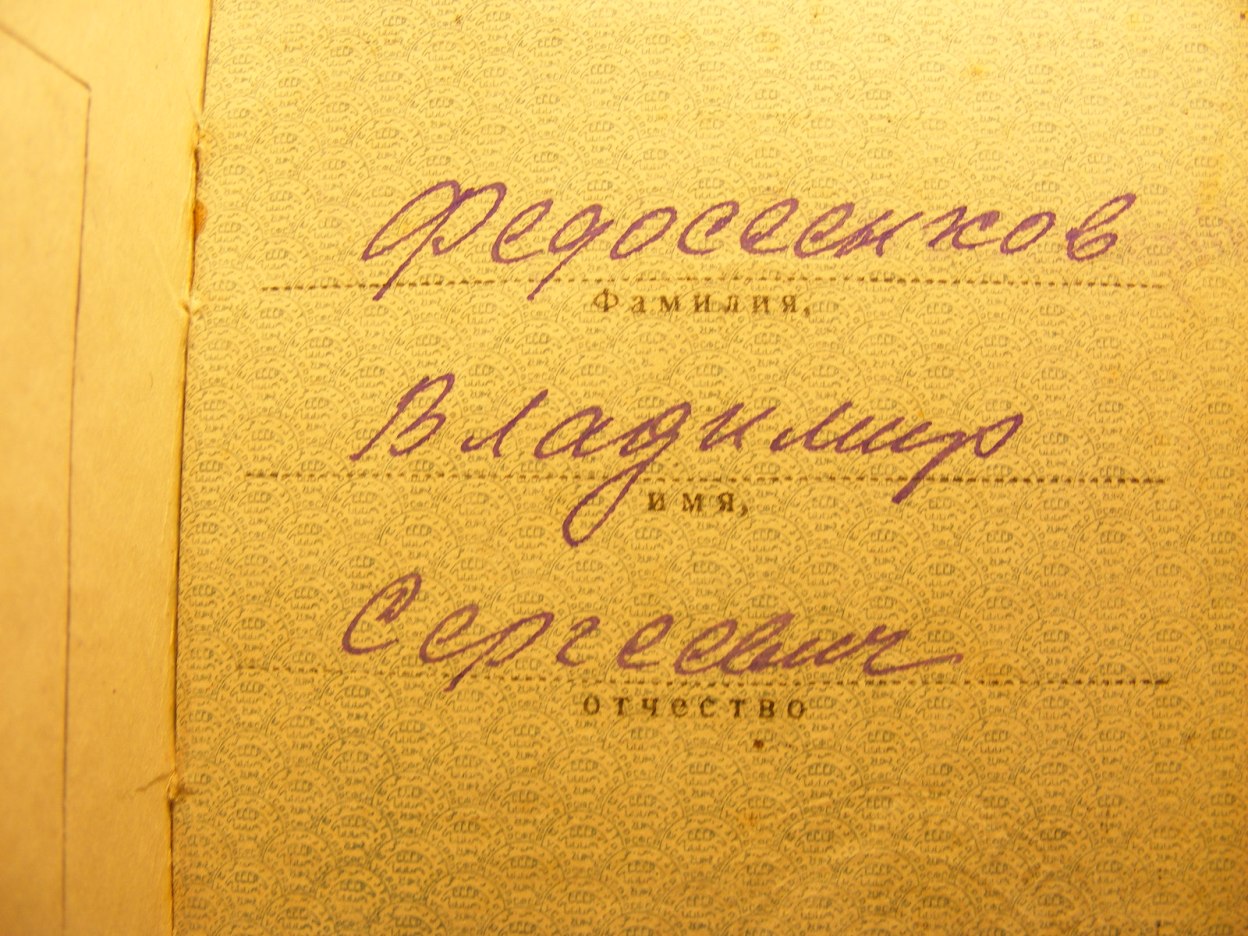 Федосеенков
Фамилия,
Владимир
имя,
Сергеевич
отчество